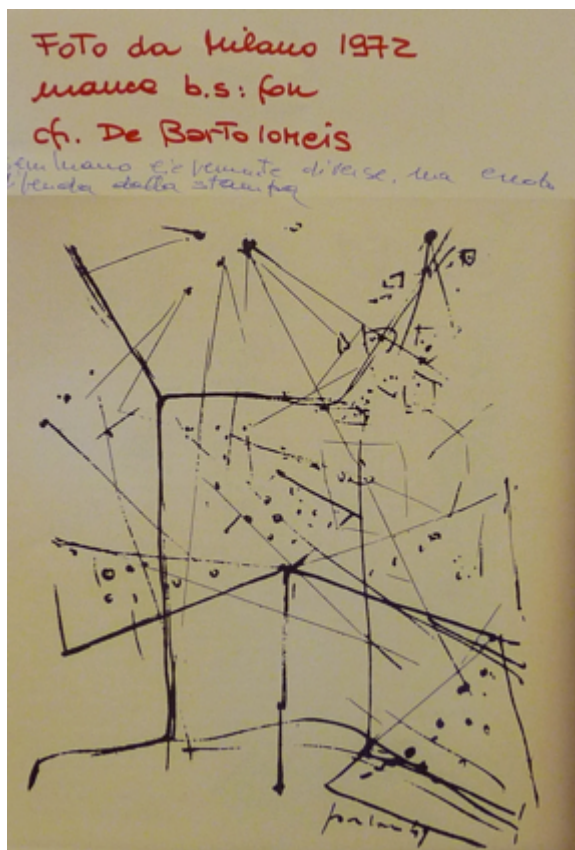 FOTO da Milano 1972
manca b.s: fon
cfr. De BarToloMeis
diverse, ma credo
dipenda dalla stampa